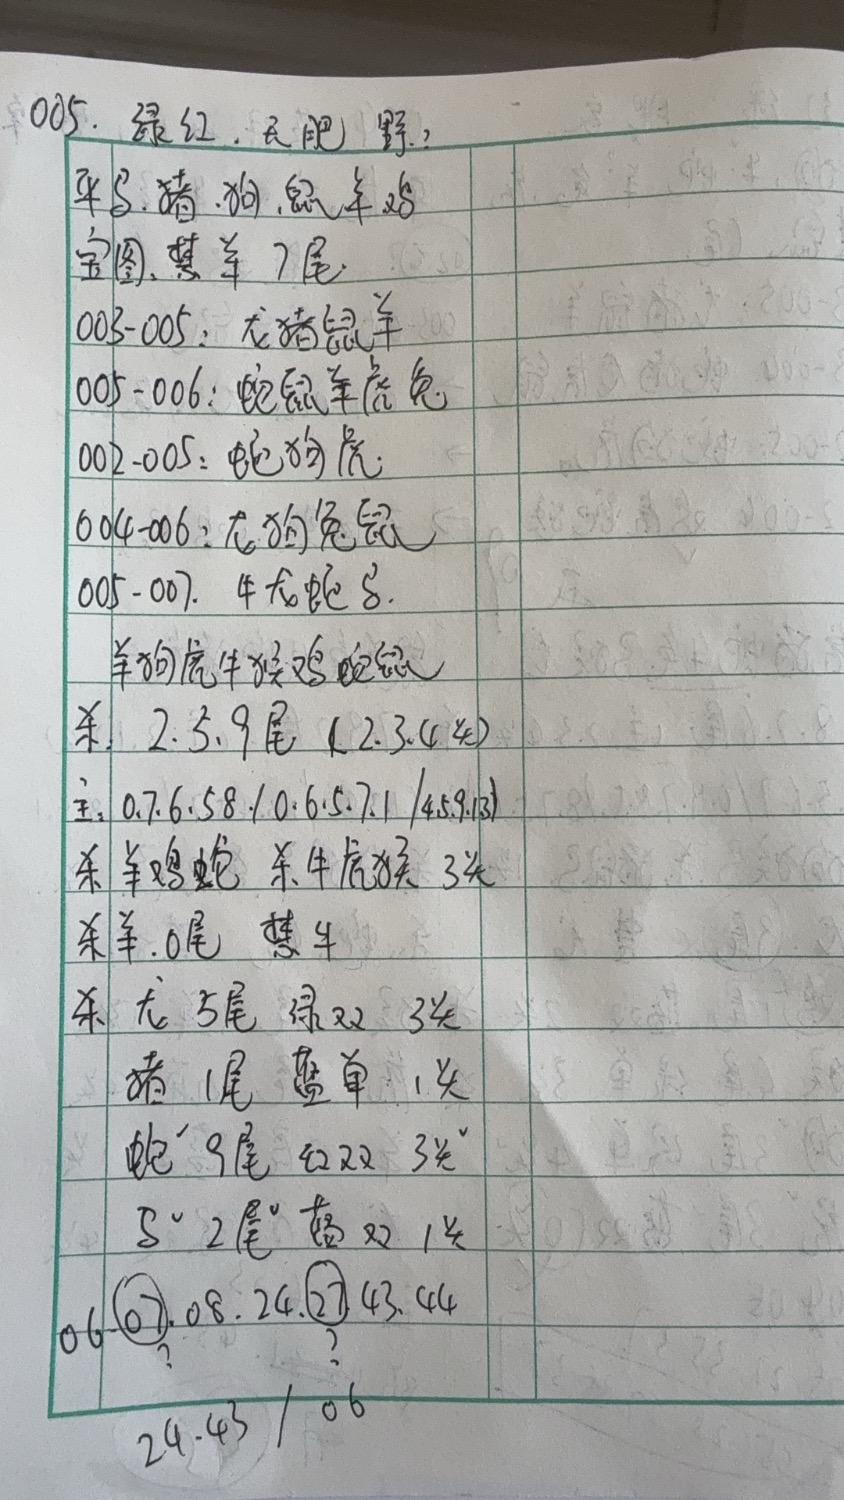 005. 绿红. 天肥 野:
平马. 猪. 狗. 鼠羊鸡
宝图、禁羊 7尾.
003-005: 龙猪鼠羊
005-006: 蛇鼠羊虎兔
002-005: 蛇狗虎.
004-006: 龙狗兔鼠
005-007. 牛龙蛇马.
羊狗虎牛猴鸡蛇鼠
杀: 2.5.9尾 (2.3.4头)
主: 0.7.6.58./0.6.5.7.1/4.5.9.13)
杀羊鸡蛇 杀牛虎猴 3头
杀羊.0尾 禁牛
杀 龙 5尾 绿双 3头
猪 1尾 蓝单 1头
蛇 9尾 红双 3头
马 2尾 蓝双 1头
06.07.08.24.27.43.44
? ?
24.43 / 06